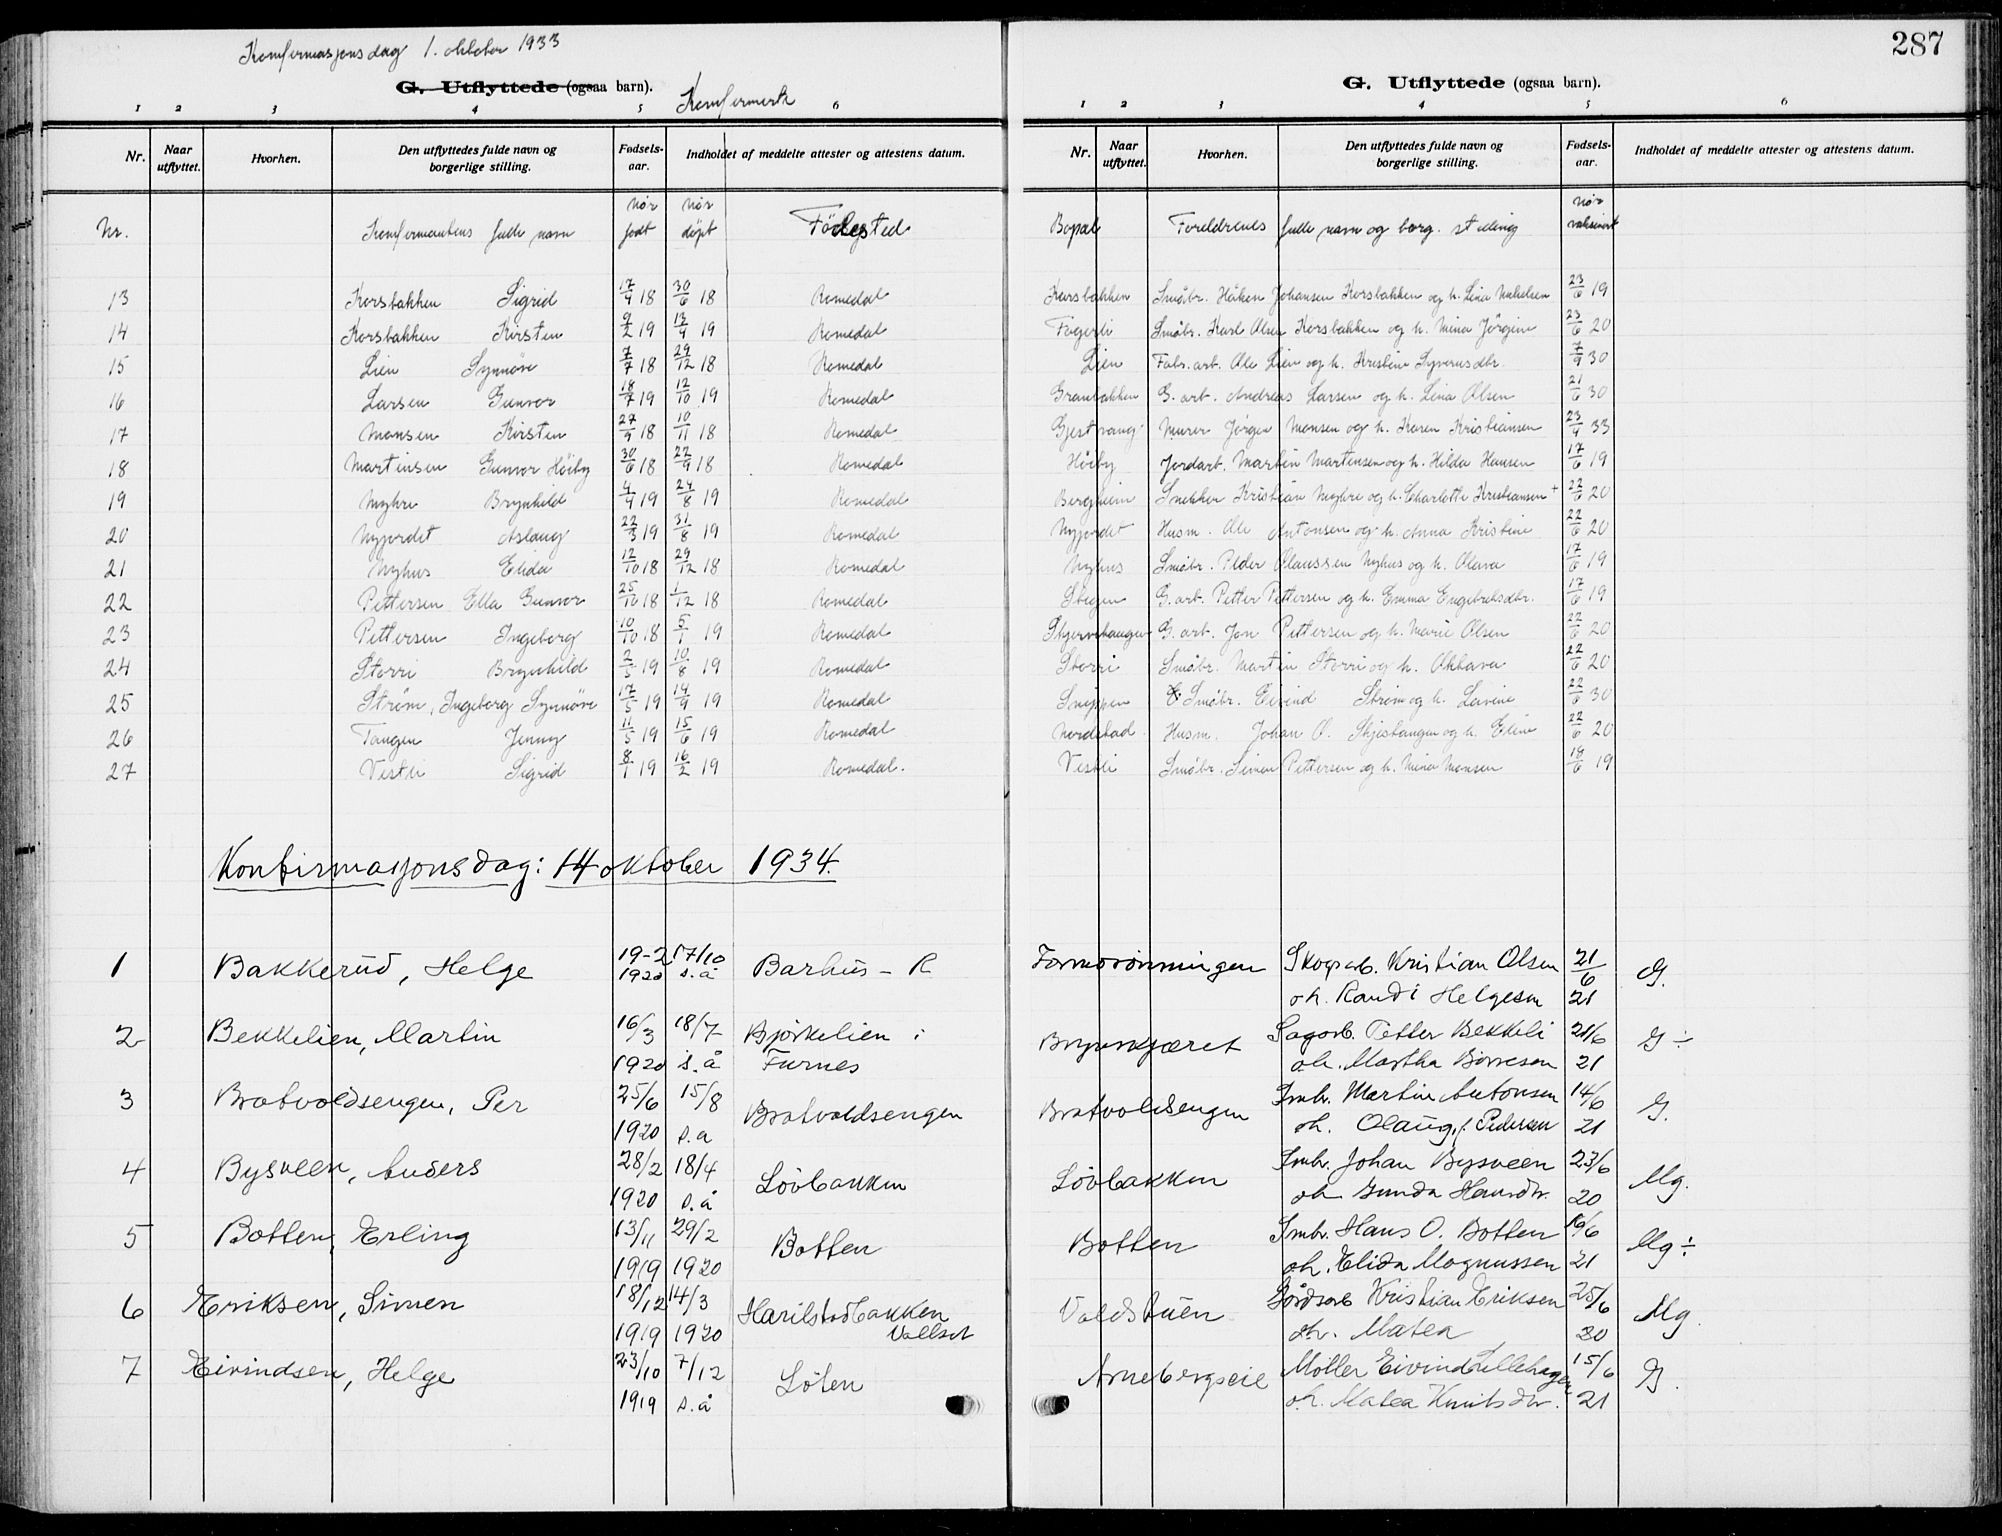 Konfirmasjonsdag 1. oktober 1933
287
G. Utflyttede (ogsaa barn).
Konfirmerte
G. Utflyttede (ogsaa barn).
1 2 3 4 5 6
1 2 3 4 5 6
Nr. Naar utflyttet. Hvorhen. Den utflyttedes fulde navn og borgerlige stilling. Fødselsaar. Indholdet af meddelte attester og attestens datum.
Nr. Naar utflyttet. Hvorhen. Den utflyttedes fulde navn og borgerlige stilling. Fødselsaar. Indholdet af meddelte attester og attestens datum.
Nr. Konfirmantens fulle navn når født når døpt Fødested Bopæl Foreldrenes fulle navn og borg. stilling når vaksinert
13 Korsbakken Sigrid 17/4 18 30/6 18 Romedal Korsbakken Småbr. Håken Johansen Korsbakken og h. Lina Mikelsen 23/6 19
14 Korsbakken Kirsten 9/2 19 13/4 19 Romedal Fagerli Småbr. Karl Olsen Korsbakken og h. Mina Jørgine 23/6 20
15 Lien Synnøve 7/7 18 29/12 18 Romedal Lien Fabr. art. Ole Lien og h. Kristine Syversdbr. 7/9 30
16 Larsen Gunvor 18/7 19 12/10 19 Romedal Granbakken G. art. Andreas Larsen og h. Lina Olsen 21/6 30
17 Monsen Kirsten 27/9 18 10/11 18 Romedal Gjestvang Murer Jørgen Monsen og h. Karen Kristiansen 23/4 33
18 Martinsen Gunvor Höiby 30/6 18 22/9 18 Romedal Höiby Jordarb. Martin Martinsen og h. Hilda Hansen 17/6 19
19 Myhre Brynhild 4/4 19 24/8 19 Romedal Bergheim Snekker Kristian Myhre og h. Charlotte Kristiansen + 22/6 20
20 Nyjordet Aslaug 22/3 19 31/8 19 Romedal Nyjordet Husm. Ole Antonsen og h. Anna Kristine 22/6 20
21 Nyhus Elida 12/10 18 29/12 18 Romedal Nyhus Småbr. Peder Olaussen Nyhus og h. Olava 17/6 19
22 Pettersen Ella Gunvor 25/10 18 1/12 18 Romedal Stegen G. art. Petter Pettersen og h. Emma Engebretsdbr. 17/6 19
23 Pettersen Ingeborg 10/10 18 5/1 19 Romedal Skjervehaugen G. art. Jon Pettersen og h. Marie Olsen 22/6 20
24 Storri Brynhild 2/5 19 10/8 19 Romedal Storri Småbr. Martin Storri og h. Oktava 22/6 20
25 Strøm, Ingeborg Synnöve 17/5 19 14/9 19 Romedal Sneppen Småbr. Eivind Strøm og h. Lovine 22/6 30
26 Tangen Jenny 11/5 19 15/6 19 Romedal Nordstad Husm. Johan O. Skjestangen og h. Eline 22/6 20
27 Vestli Sigrid 8/1 19 16/2 19 Romedal. Vestli Småbr. Simen Pettersen og h. Mina Monsen 18/6 19
Konfirmasjonsdag: 14 oktober 1934.
1 Bakkerud, Helge 19-2 17/10 Barhus - R Formorønningen Skogsarb. Kristian Olsen 21/6 G.
1920 s.å oh. Randi Helgesen 21
2 Bekkelien, Martin 16/3 18/7 Bjørkelien i Brynskjæret Sagarb. Petter Bekkeli 21/6 G ÷
1920 s.å Furnes oh. Martha Børresen 21
3 Bratvoldsengen, Per 25/6 15/8 Bratvoldsengen Bratvoldsengen Smbr. Martin Antonsen 14/6 G.
1920 s.a oh. Olaug, f. Pedersen 21
4 Bysveen, Anders 28/2 18/4 Løvbakken Løvbakken Smbr. Johan Bysveen 23/6 Mg.
1920 s.å oh Gunda Hansdtr. 20
5 Botten, Erling 13/11 29/2 Botten Botten Smbr. Hans O. Botten 16/6 Mg ÷
1919 1920 oh. Elida Magnussen 21
6 Eriksen, Simen 18/12 14/3 Harilstadbakken Voldstuen Gårdsarb Kristian Eriksen 25/6 Mg.
1919 1920 Vallset oh. Matea 30
7 Eivindsen, Helge 23/10 7/12 Løten Arnebergseie Møller Eivind Lillehagen 15/6 G.
1919 s.å o.h. Matea Knutsdtr. 21